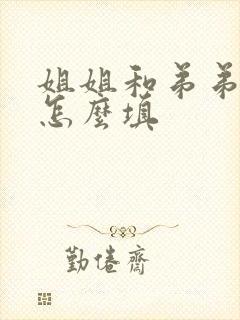 姐姐和弟弟
怎麼填
勤倦齋